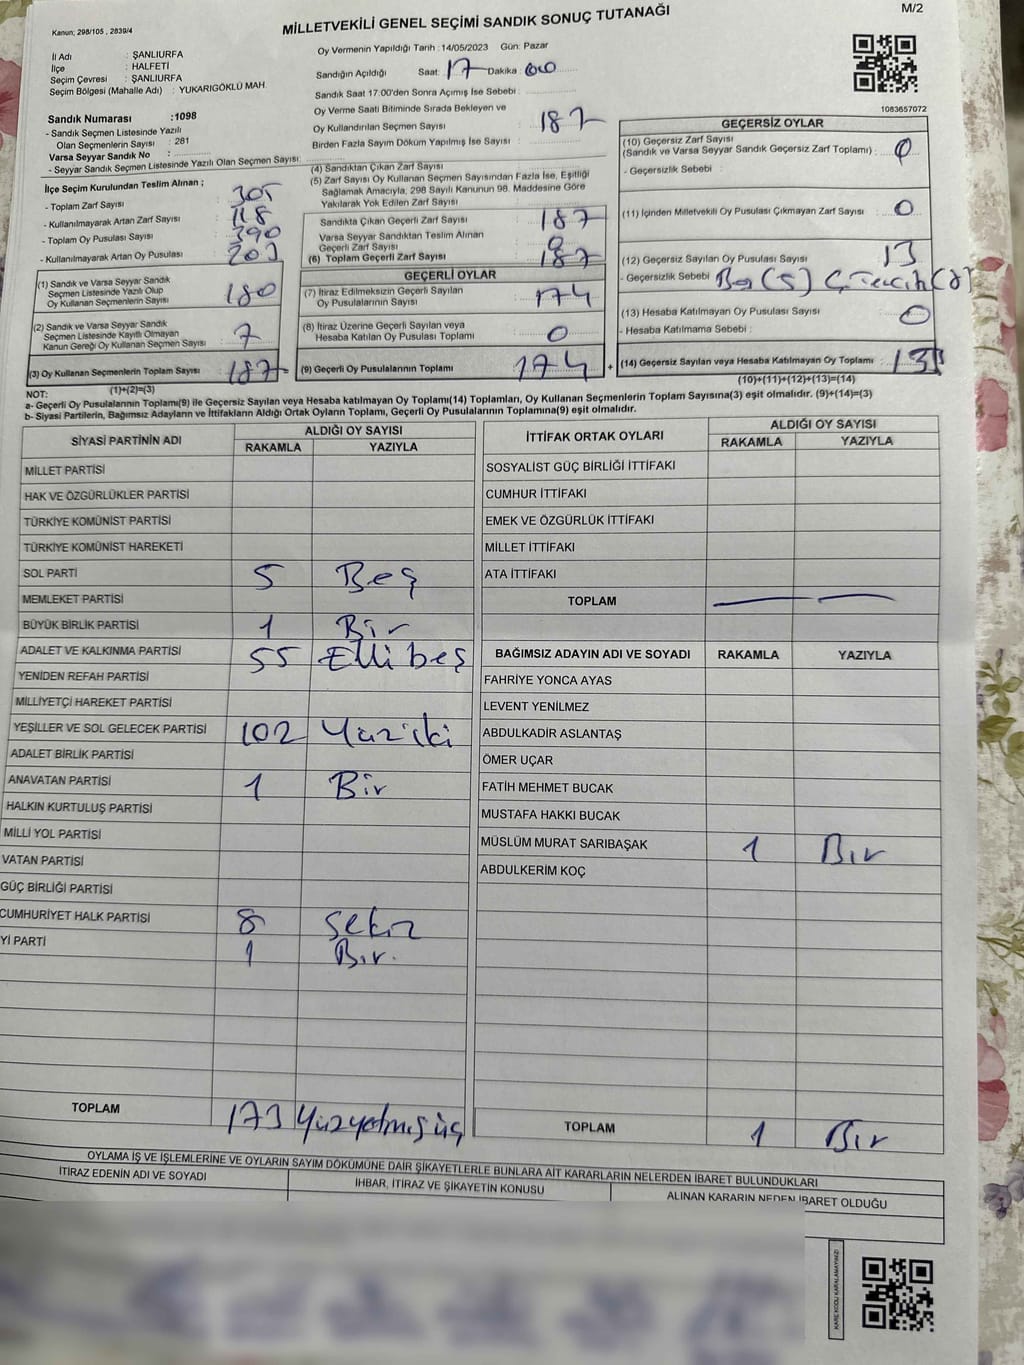 Kanun; 298/105 , 2839/4
MİLLETVEKİLİ GENEL SEÇİMİ SANDIK SONUÇ TUTANAĞI
M/2
İl Adı : ŞANLIURFA
İlçe : HALFETİ
Seçim Çevresi : ŞANLIURFA
Seçim Bölgesi (Mahalle Adı) : YUKARIGÖKLÜ MAH.
Oy Vermenin Yapıldığı Tarih : 14/05/2023 Gün: Pazar
Sandığın Açıldığı Saat: 17 Dakika : 00
Sandık Saat 17:00'den Sonra Açımış İse Sebebi :
Oy Verme Saati Bitiminde Sırada Bekleyen ve
Oy Kullandırılan Seçmen Sayısı : 187
Birden Fazla Sayım Döküm Yapılmış İse Sayısı :
1083657072
Sandık Numarası :1098
- Sandık Seçmen Listesinde Yazılı
Olan Seçmenlerin Sayısı : 281
Varsa Seyyar Sandık No :
- Seyyar Sandık Seçmen Listesinde Yazılı Olan Seçmen Sayısı:
İlçe Seçim Kurulundan Teslim Alınan ;
- Toplam Zarf Sayısı : 305
- Kullanılmayarak Artan Zarf Sayısı : 118
- Toplam Oy Pusulası Sayısı : 390
- Kullanılmayarak Artan Oy Pusulası : 203
(1) Sandık ve Varsa Seyyar Sandık
Seçmen Listesinde Yazılı Olup
Oy Kullanan Seçmenlerin Sayısı : 180
(2) Sandık ve Varsa Seyyar Sandık
Seçmen Listesinde Kayıtlı Olmayan
Kanun Gereği Oy Kullanan Seçmen Sayısı : 7
(3) Oy Kullanan Seçmenlerin Toplam Sayısı : 187
(1)+(2)=(3)
(4) Sandıktan Çıkan Zarf Sayısı :
(5) Zarf Sayısı Oy Kullanan Seçmen Sayısından Fazla İse, Eşitliği
Sağlamak Amacıyla, 298 Sayılı Kanunun 98. Maddesine Göre
Yakılarak Yok Edilen Zarf Sayısı :
Sandıkta Çıkan Geçerli Zarf Sayısı : 187
Varsa Seyyar Sandıktan Teslim Alınan
Geçerli Zarf Sayısı : 0
(6) Toplam Geçerli Zarf Sayısı : 187
GEÇERLİ OYLAR
(7) İtiraz Edilmeksizin Geçerli Sayılan
Oy Pusulalarının Sayısı : 174
(8) İtiraz Üzerine Geçerli Sayılan veya
Hesaba Katılan Oy Pusulası Toplamı : 0
(9) Geçerli Oy Pusulalarının Toplamı : 174
+
GEÇERSİZ OYLAR
(10) Geçersiz Zarf Sayısı
(Sandık ve Varsa Seyyar Sandık Geçersiz Zarf Toplamı) : 0
- Geçersizlik Sebebi :
(11) İçinden Milletvekili Oy Pusulası Çıkmayan Zarf Sayısı : 0
(12) Geçersiz Sayılan Oy Pusulası Sayısı : 13
- Geçersizlik Sebebi : Boş (5)
(13) Hesaba Katılmayan Oy Pusulası Sayısı : 0
- Hesaba Katılmama Sebebi :
(14) Geçersiz Sayılan veya Hesaba Katılmayan Oy Toplamı : 13
(10)+(11)+(12)+(13)=(14)
NOT:
a- Geçerli Oy Pusulalarının Toplamı(9) ile Geçersiz Sayılan veya Hesaba katılmayan Oy Toplamı(14) Toplamları, Oy Kullanan Seçmenlerin Toplam Sayısına(3) eşit olmalıdır. (9)+(14)=(3)
b- Siyasi Partilerin, Bağımsız Adayların ve İttifakların Aldığı Ortak Oyların Toplamı, Geçerli Oy Pusulalarının Toplamına(9) eşit olmalıdır.
SİYASİ PARTİNİN ADI ALDIĞI OY SAYISI
RAKAMLA YAZIYLA
MİLLET PARTİSİ
HAK VE ÖZGÜRLÜKLER PARTİSİ
TÜRKİYE KOMÜNİST PARTİSİ
TÜRKİYE KOMÜNİST HAREKETİ
SOL PARTİ 5 Beş
MEMLEKET PARTİSİ
BÜYÜK BİRLİK PARTİSİ 1 Bir
ADALET VE KALKINMA PARTİSİ 55 Elli beş
YENİDEN REFAH PARTİSİ
MİLLİYETÇİ HAREKET PARTİSİ
YEŞİLLER VE SOL GELECEK PARTİSİ 102 Yüz iki
ADALET BİRLİK PARTİSİ
ANAVATAN PARTİSİ 1 Bir
HALKIN KURTULUŞ PARTİSİ
MİLLİ YOL PARTİSİ
VATAN PARTİSİ
GÜÇ BİRLİĞİ PARTİSİ
CUMHURİYET HALK PARTİSİ 8 sekiz
Yİ PARTİ 1 Bir.
TOPLAM 173 Yüzyetmişüç
İTTİFAK ORTAK OYLARI ALDIĞI OY SAYISI
RAKAMLA YAZIYLA
SOSYALİST GÜÇ BİRLİĞİ İTTİFAKI
CUMHUR İTTİFAKI
EMEK VE ÖZGÜRLÜK İTTİFAKI
MİLLET İTTİFAKI
ATA İTTİFAKI
TOPLAM — —
BAĞIMSIZ ADAYIN ADI VE SOYADI RAKAMLA YAZIYLA
FAHRİYE YONCA AYAS
LEVENT YENİLMEZ
ABDULKADİR ASLANTAŞ
ÖMER UÇAR
FATİH MEHMET BUCAK
MUSTAFA HAKKI BUCAK
MÜSLÜM MURAT SARIBAŞAK 1 Bir
ABDULKERİM KOÇ
TOPLAM 1 Bir
OYLAMA İŞ VE İŞLEMLERİNE VE OYLARIN SAYIM DÖKÜMÜNE DAİR ŞİKAYETLERLE BUNLARA AİT KARARLARIN NELERDEN İBARET BULUNDUKLARI
İTİRAZ EDENİN ADI VE SOYADI İHBAR, İTİRAZ VE ŞİKAYETİN KONUSU ALINAN KARARIN NEDEN İBARET OLDUĞU
KARE KODU KARALAMAYINIZ!